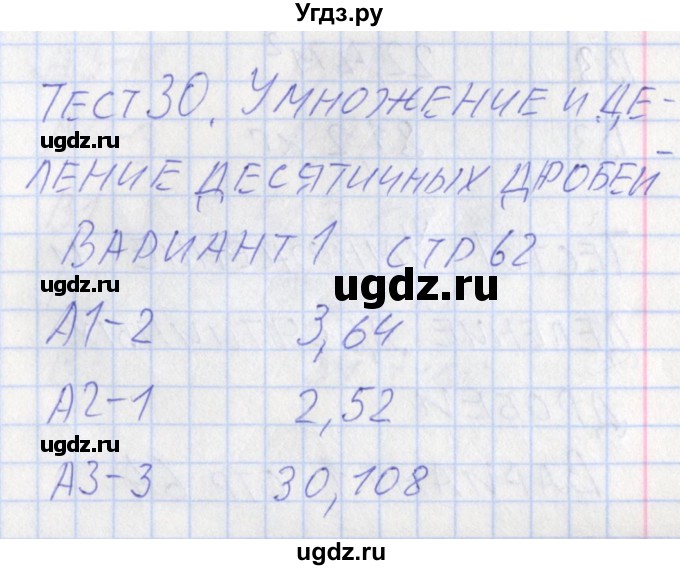 Угдз.ру
ТЕСТ 30. УМНОЖЕНИЕ И ДЕ-
ugdz.ru
ЛЕНИЕ ДЕСЯТИЧНЫХ ДРОБЕЙ
ВАРИАНТ 1 СТР 62
ugdz.ru
ugdz.ru
А1-2 3,64
А2-1 2,52
ugdz.ru
А3-3 30,108
ugdz.ru